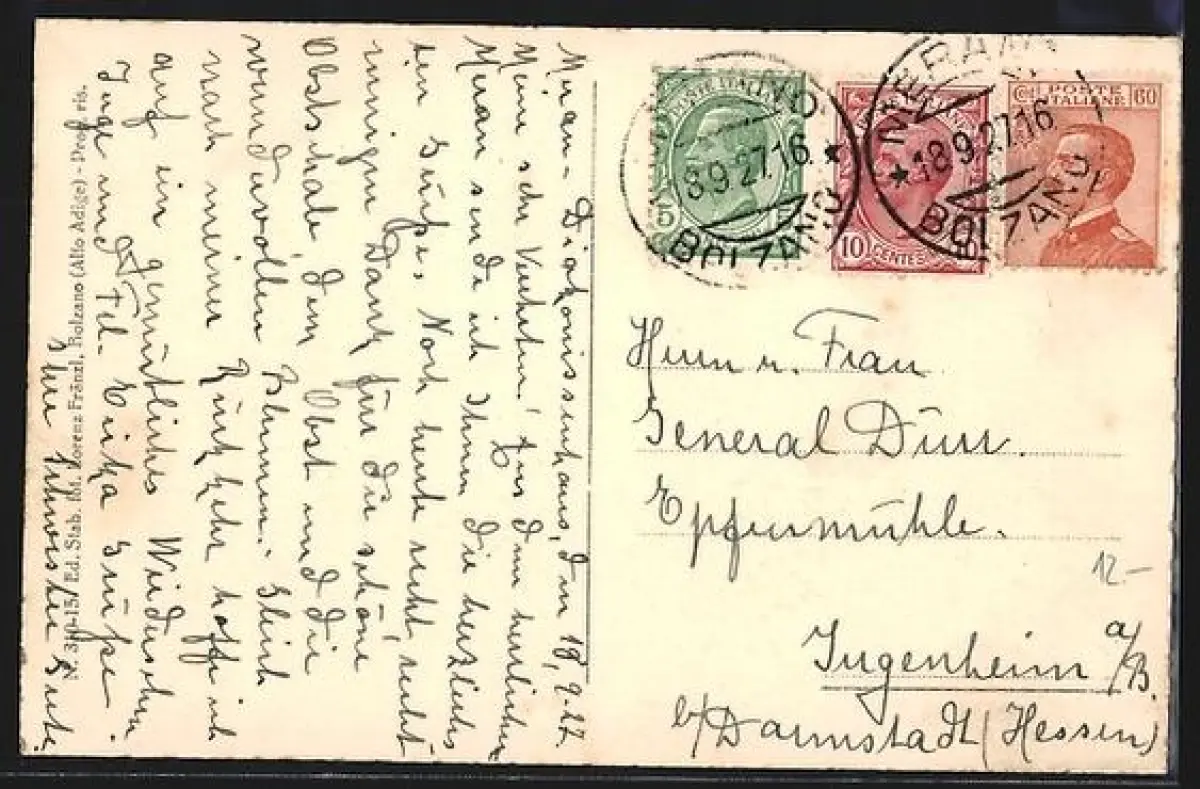 Meran- Diakonissenhaus, den 18.9.27.
Meine sehr Verehrten! Aus dem herrlichen
Meran sende ich Ihnen die herzlichs
ten Grüsse. Noch heute recht, recht
innigen Dank für die schöne
Obstschale, dem Obst und die
wundervollen Blumen. Gleich
nach meiner Rückkehr hoffe ich
auf ein gemütliches Wiedersehen.
Inge und Frl. Grüsse
Ihre Schwester
N. 310-15/ Ed. Stab. Int. Lorenz Fränzl, Bolzano (Alto Adige) - Prop. ris.
POSTE ITALIANE
5
MERANO
18.9.27.16
BOLZANO
10 CENTES. 10
MERANO
18.9.27.16
BOLZANO
Cent POSTE 60
ITALIANE
Herrn u. Frau
General Dürr.
Epfenmühle.
12-
Jugenheim a/B.
b/Darmstadt (Hessen)